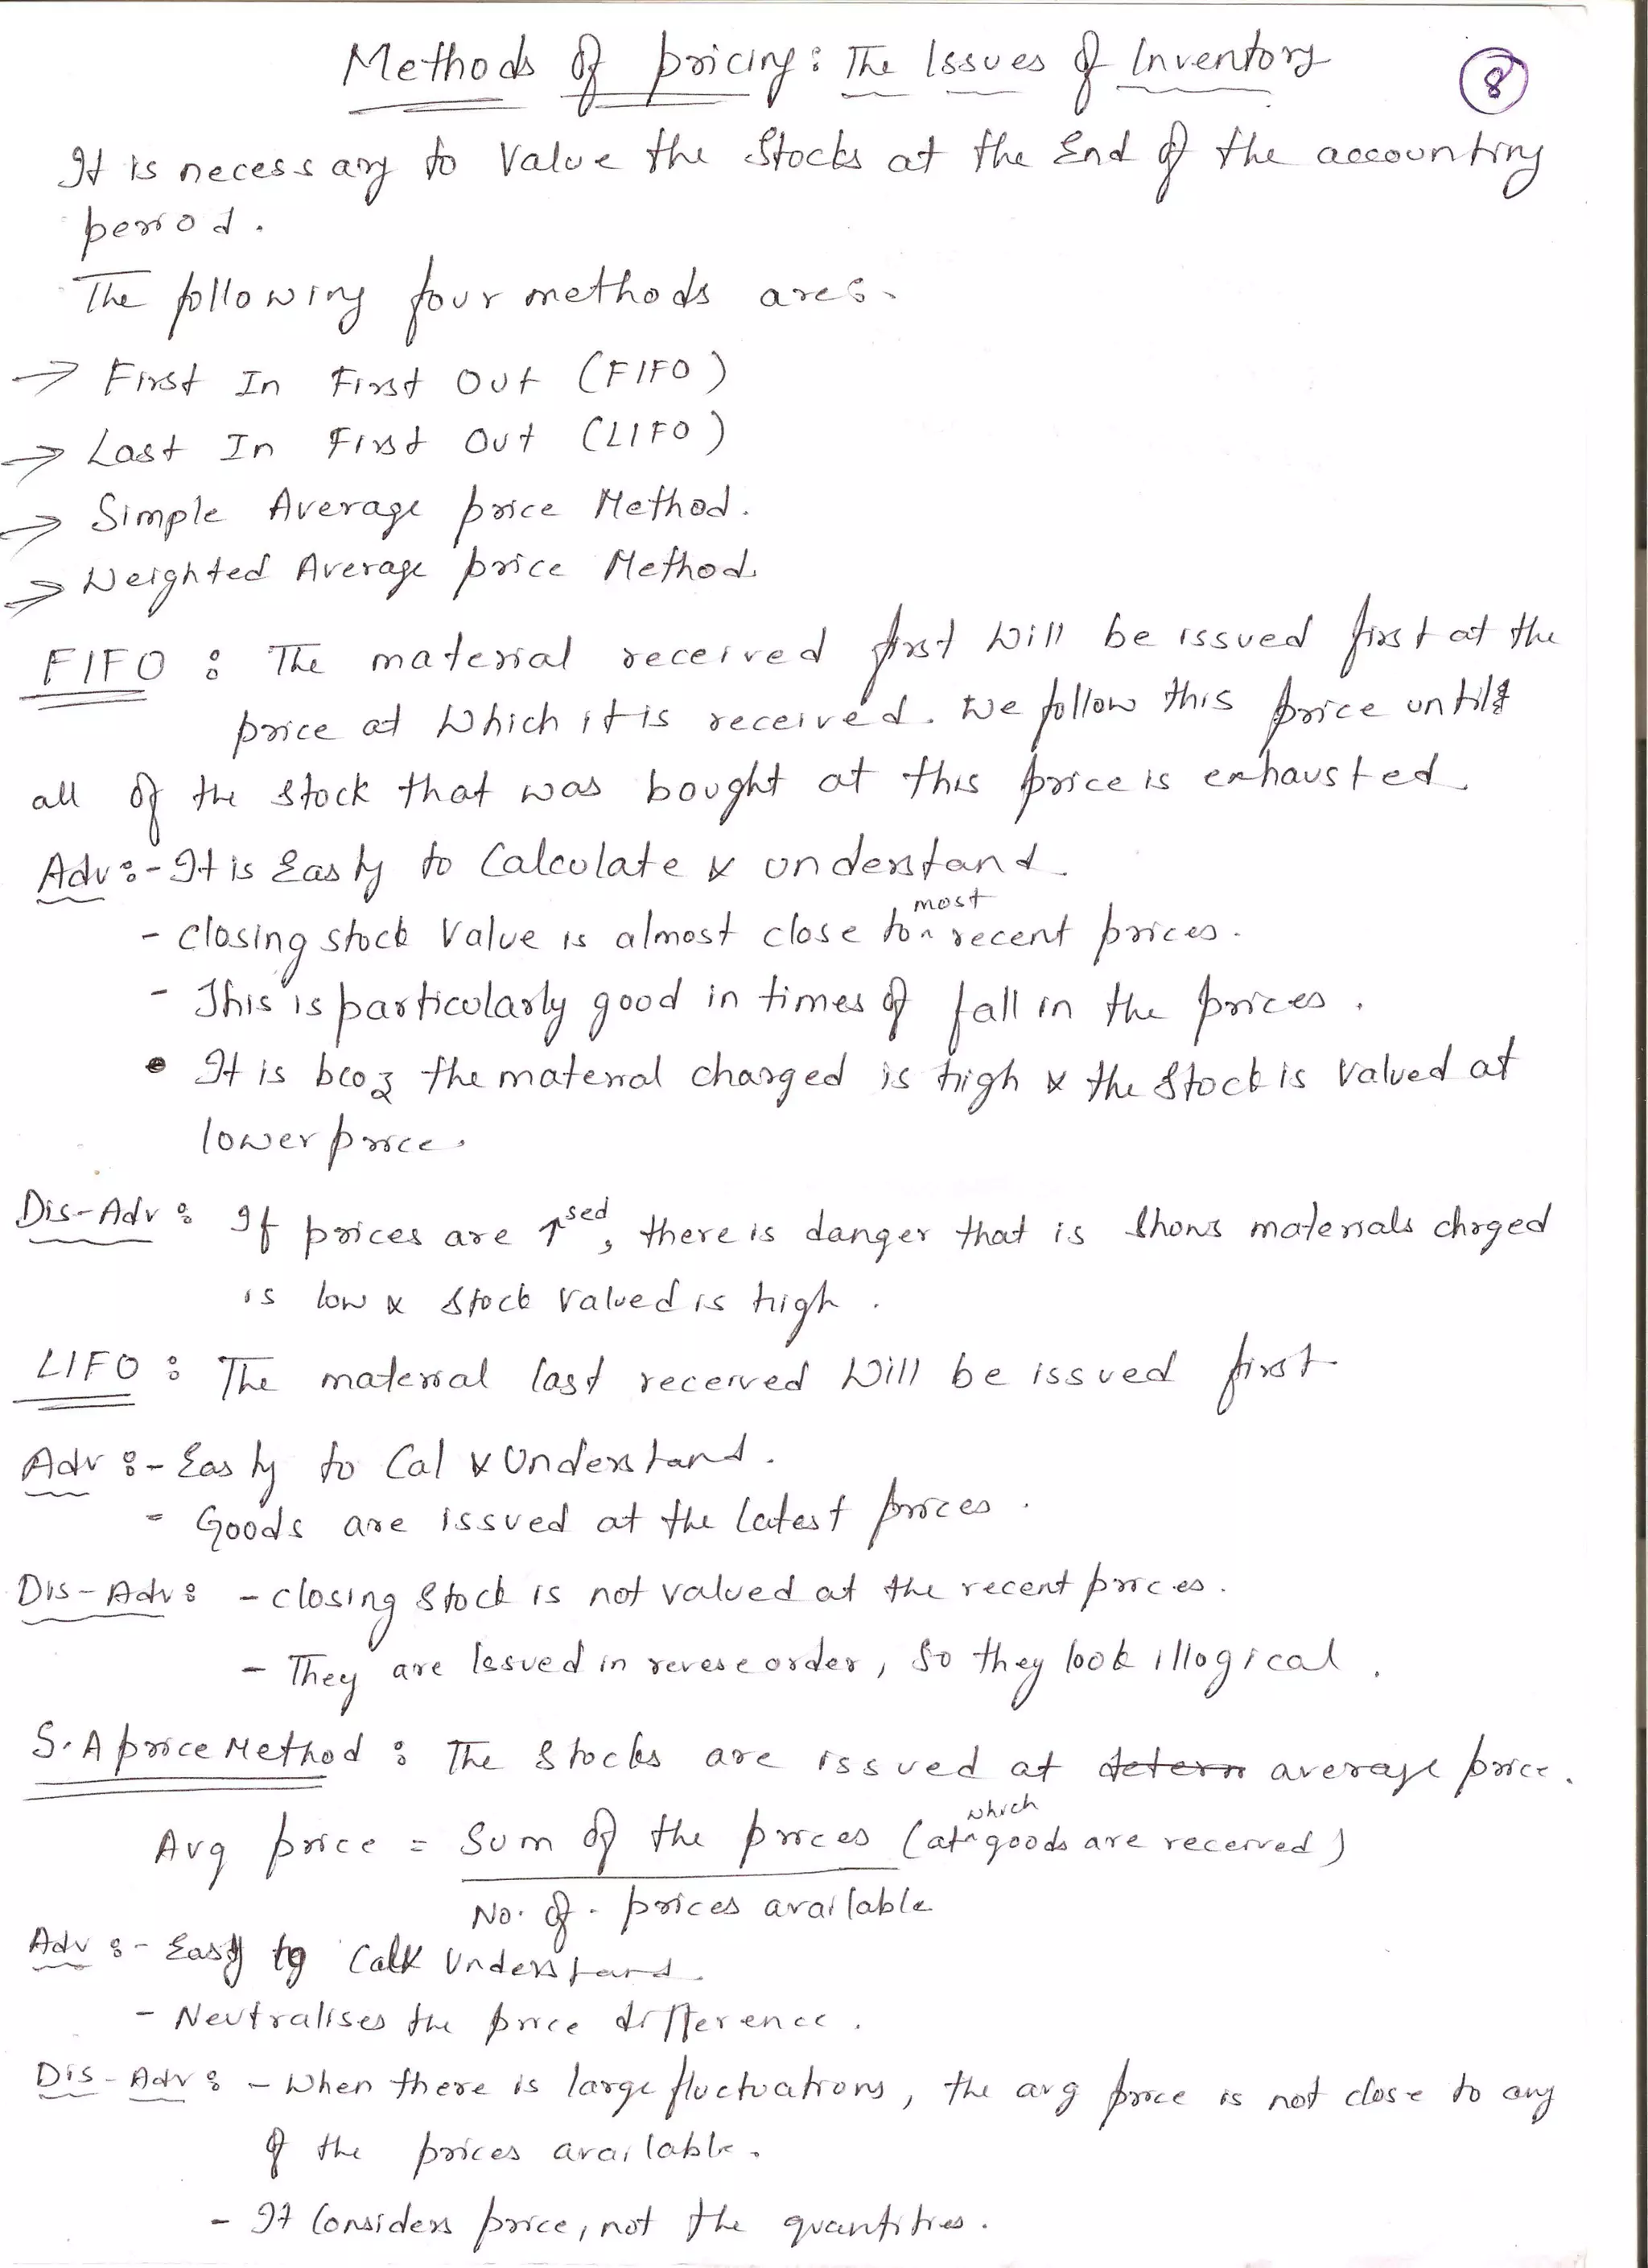 Methods of pricing: The Issues of Inventory
8
It is necessary to Value the Stocks at the End of the accounting
period.
The following four methods are:-
→ First In First Out (FIFO)
→ Last In First Out (LIFO)
→ Simple Average price Method.
→ Weighted Average price Method.
FIFO : The material received first will be issued first at the
price at which it is received. We follow this price until
all of the stock that was bought at this price is exhausted.
Adv:- It is Easy to Calculate & understand.
- closing stock Value is almost close to most recent prices.
- This is particularly good in times of fall in the prices.
• It is bcoz the material charged is high & the stock is valued at
lower price.
Dis-Adv: If prices are ↑sed, there is danger that is shows materials chrged
is low & stock valued is high.
LIFO : The material last received will be issued first
Adv:- Easy to Cal & Understand.
- Goods are issued at the latest prices.
Dis-Adv: - closing stock is not valued at the recent prices.
- They are Issued in revese order, so they look illogical.
S.A price Method : The stocks are issued at detern average price.
Avg price = Sum of the prices (at which goods are received)
No. of. prices available
Adv:- Easy to Cal & Understand.
- Neutralises the price difference.
Dis-Adv: - When there is large fluctuations, the avg price is not close to any
of the prices available.
- It Considers price, not the quantities.